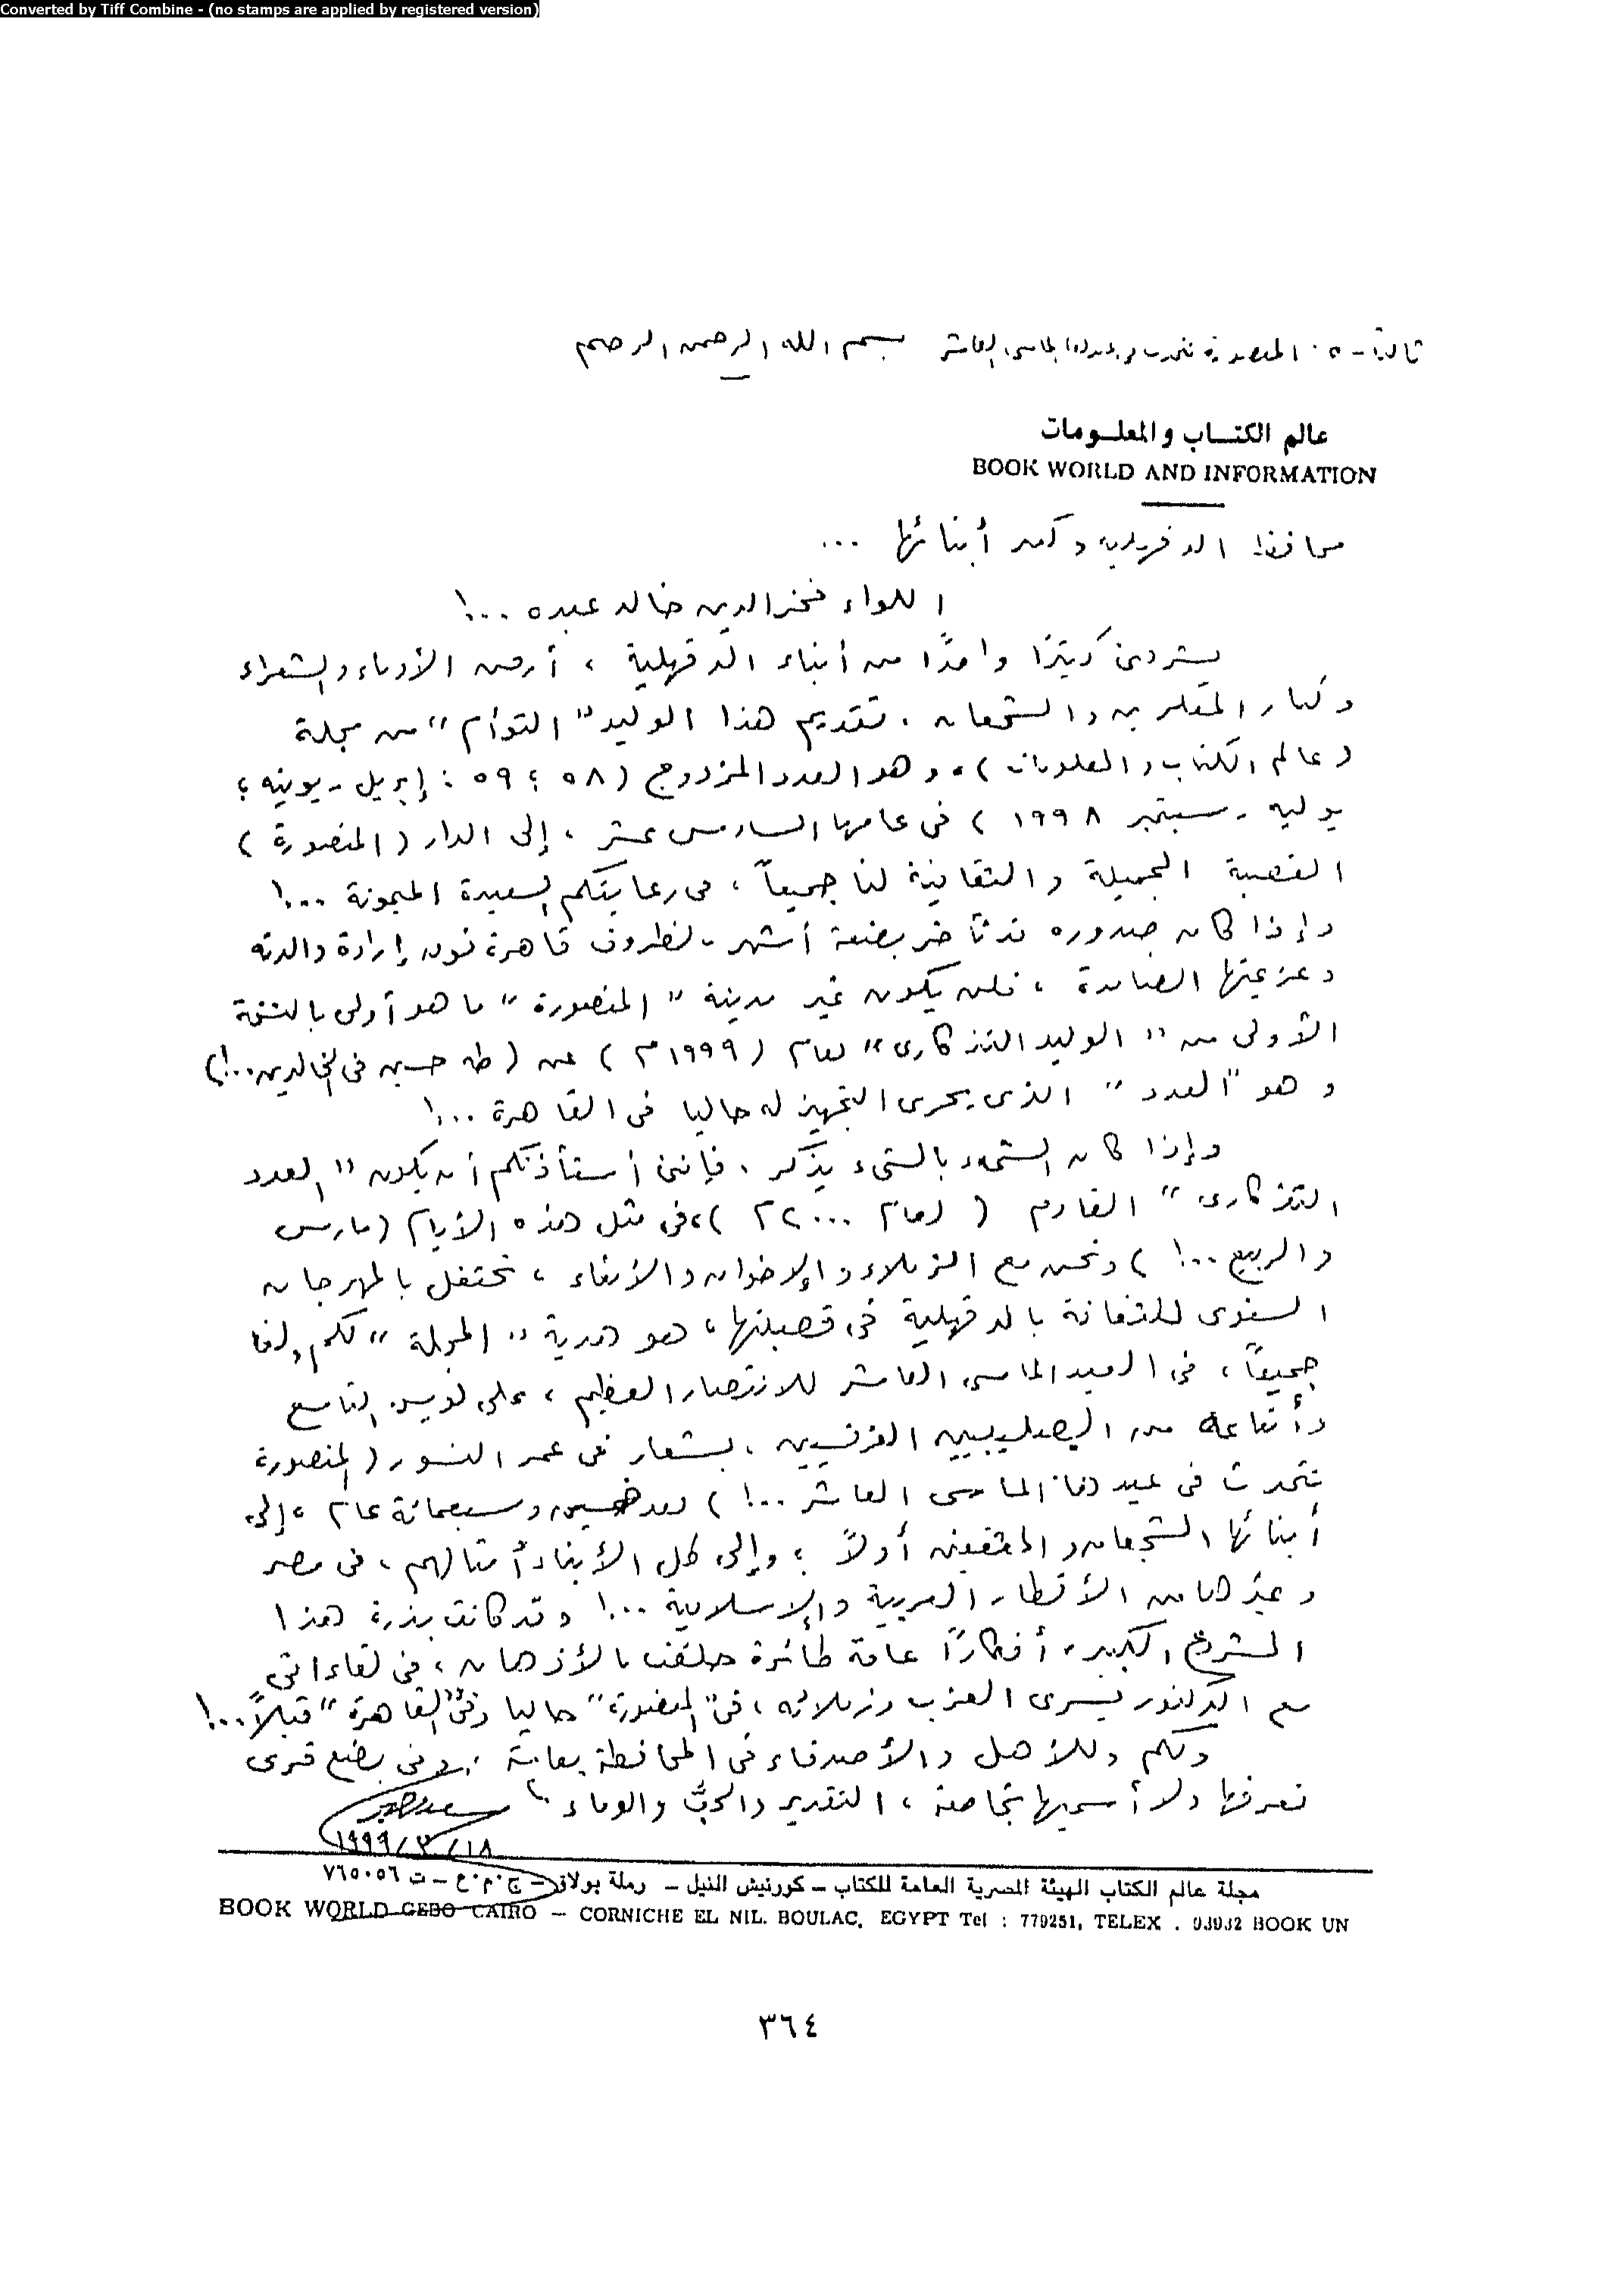 Converted by Tiff Combine - (no stamps are applied by registered version)
المنصورة تتحدث في عيدها الماسي العاشر بسم الله الرحمن الرحيم
عالم الكتـــاب والمعلــومات
BOOK WORLD AND INFORMATION
محافظ الدقهلية وكبير أبنائها ...
اللواء فخر الدين خالد عبده ...!
يشرفني كثيرًا واحدًا من أبناء الدقهلية ، أرض الأدباء والشعراء
وكبار المفكرين والشجعان ، تقديم هذا الوليد " التوأم " من مجلة
( عالم الكتاب والمعلومات ) ، وهو العدد المزدوج ( ٥٨ ؛ ٥٩ : إبريل - يونيه ؛
يوليه - سبتمبر ١٩٩٨ ) في عامها السادس عشر ، إلى الدار ( المنصورة )
القصبة الجميلة والثقافية لنا جميعاً ، في رعايتكم السعيدة الميمونة ...!
وإذا كان صدوره قد تأخر بضعة أشهر ، لظروف قاهرة فوق إرادة والدته
وعزيمتها الصامدة ، فلن يكون غير مدينة " المنصورة " ما هو أولى بالنسخة
الأولى من " الوليد التذكارى " لعام ( ١٩٩٩ م ) عن ( طه حسين في الخالدين ..!)
وهو " العدد " الذى يجرى التجهيز له حاليا فى القاهرة ...!
وإذا كان الشىء بالشىء يذكر ، فإننى أستأذنكم أن يكون " العدد
التذكارى " القادم ( لعام ٢٠٠٠ م ) ، فى مثل هذه الأيام ( مارس
والربيع ..! ) ونحن مع الزملاء والإخوان والأبناء ، نحتفل بالمهرجان
السنوى للثقافة بالدقهلية فى قصبتها ، هو هدية " المجلة " لكم ولنا
جميعاً ، فى العيد الماسى العاشر للانتصار العظيم ، على لويس التاسع
وأتباعه من الصليبيين الفرنسيين ، بشعار فى عمر النسور ( المنصورة
تتحدث فى عيدها الماسى العاشر ..! ) بعد خمسين وسبعمائة عام ، إلى
أبنائها الشجعان والمثقفين أولاً ؛ وإلى كل الأبناء أمثالهم ، فى مصر
وغيرها من الأقطار العربية والإسلامية ...! وقد كانت بذرة هذا
المشروع الكبير ، أفكارًا عامة طائرة حلقت بالأذهان ، فى لقاءاتى
مع الدكتور يسرى العزب وزملائه ، فى " المنصورة " حاليا وفى " القاهرة " قبلاً ...!
ولكم وللأهل والأصدقاء فى المحافظة بعامة ، وفى بضع قرى
نعرفها ولا أسميها بخاصة ، التقدير والحبّ والوفاء
١٩٩٩/٣/١٨
مجلة عالم الكتاب الهيئة المصرية العامة للكتاب – كورنيش النيل – رملة بولاق – ج.م.ع – ت ٧٦٥٠٥٦
BOOK WORLD GEBO CAIRO – CORNICHE EL NIL. BOULAC, EGYPT Tel : 779251, TELEX . 93932 BOOK UN
٣٦٤